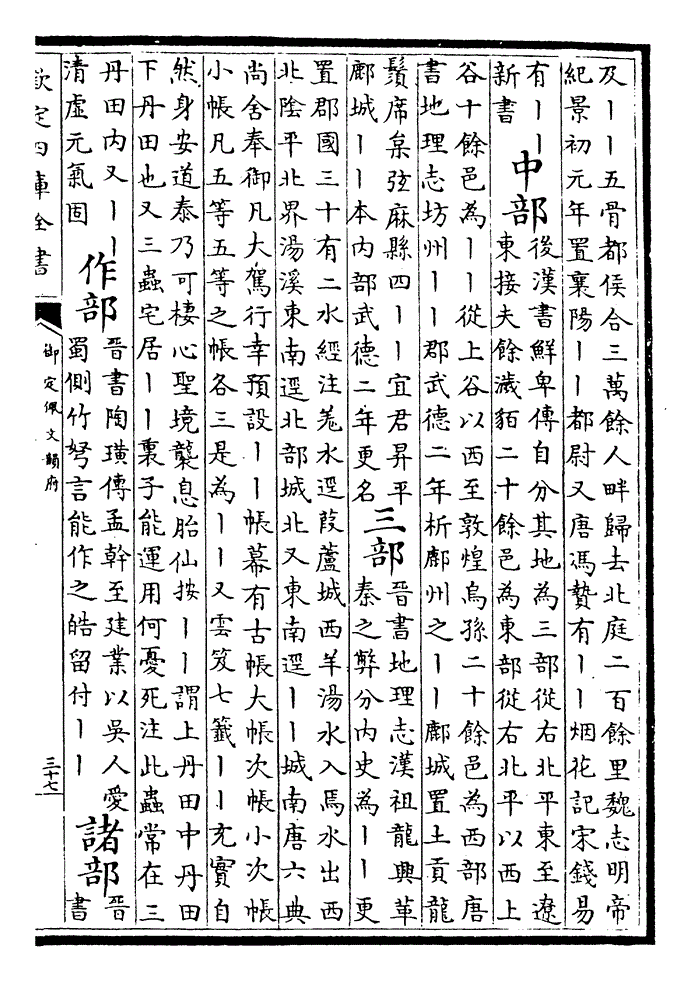 及丨丨五骨都侯合三萬餘人畔歸去北庭二百餘里魏志明帝
紀景初元年置襄陽丨丨都尉又唐馮贄有丨丨烟花記宋錢易
有丨丨
新書
中部
後漢書鮮卑傳自分其地為三部從右北平東至遼
東接夫餘濊貊二十餘邑為東部從右北平以西上
谷十餘邑為丨丨從上谷以西至敦煌烏孫二十餘邑為西部唐
書地理志坊州丨丨郡武德二年析鄜州之丨丨鄜城置土貢龍
鬚席枲弦麻縣四丨丨宜君昇平
鄜城丨丨本內部武德二年更名
三部
晉書地理志漢祖龍興革
秦之弊分內史為丨丨更
置郡國三十有二水經注羌水逕葭蘆城西羊湯水入焉水出西
北陰平北界湯溪東南逕北部城北又東南逕丨丨城南唐六典
尚舍奉御凡大駕行幸預設丨丨帳幕有古帳大帳次帳小次帳
小帳凡五等五等之帳各三是為丨丨又雲笈七籤丨丨充實自
然身安道泰乃可棲心聖境襲息胎仙按丨丨謂上丹田中丹田
下丹田也又三蟲宅居丨丨裏子能運用何憂死注此蟲常在三
丹田內又丨丨
清虛元氣固
作部
晉書陶璜傳孟幹至建業以吳人愛
蜀側竹弩言能作之皓留付丨丨
諸部
晉
書
欽定四庫全書
御定佩文韻府
三十七